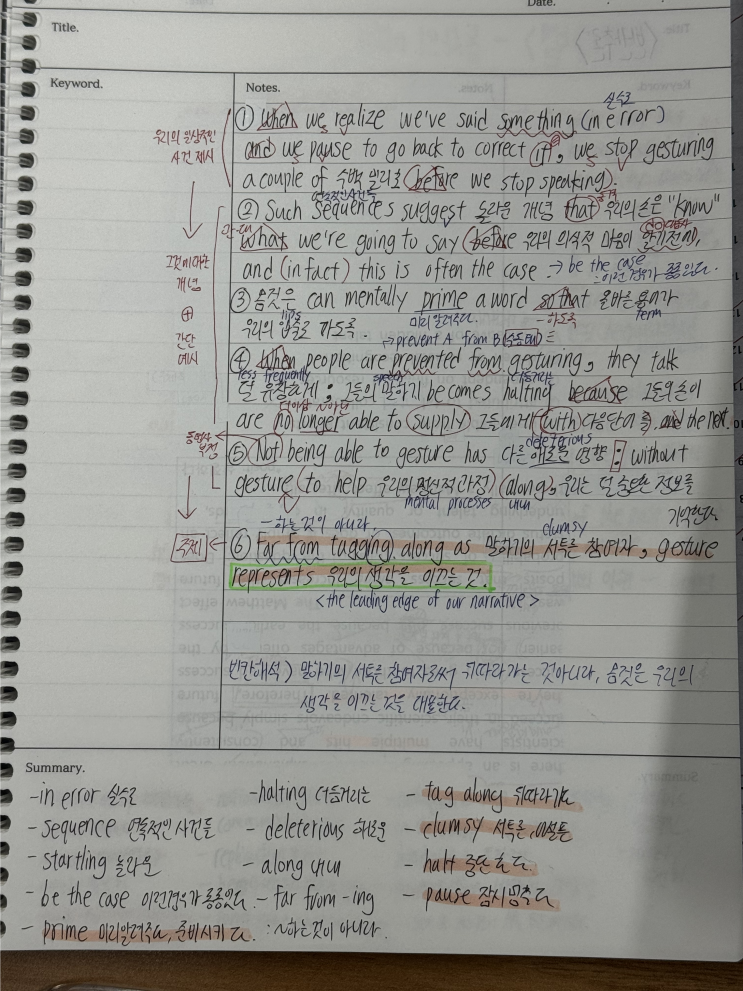 Date.
Title.
<빈칸추론>
Keyword.
Notes.
우리의 일상적인
사건 제시
그것이 나타내는
개념
⊕
간단
예시
동명사
부정
주제
실수로
① When we realize we've said something (in error)
and we pause to go back to correct it, we stop gesturing
a couple of 수백 밀리초 before we stop speaking).
연속적인 사건들
② Such sequences suggest 놀라운 개념 that 우리의 손은 "know"
what we're going to say (before 우리의 의식적 마음이 알기 전에),
and (in fact) this is often the case → be the case
: 이런 경우가 종종있다.
③ 몸짓은 can mentally prime a word so that 올바른 용어가
term
lips
미리 알려주다.
- 하도록
우리의 입술로 가도록.
→ prevent A from B (동명사)
④ When people are prevented from gesturing, they talk
less frequently
speech
더듬거리는
덜 유창하게; 그들의 말하기 becomes halting because 그들의 손이
더이상 ~ 아닌
are no longer able to (supply) 그들에게 (with) 다음단어 즉, and the next.
deleterious
⑤ Not being able to gesture has 다른 해로운 영향 : without
gesture (to help 우리의 정신적 과정) (along), 우리는 덜 유용한 정보를
mental processes
내내
기억한다.
-하는 것이 아니라.
clumsy
⑥ Far from tagging along as 말하기의 서투른 참여자, gesture
represents 우리의 생각을 이끄는 것.
<the leading edge of our narrative>
빈칸해석) 말하기의 서투른 참여자로써 뒤따라가는 것 아니라, 몸짓은 우리의
생각을 이끄는 것을 대표한다.
Summary.
- in error 실수로
- sequence 연속적인 사건들
- startling 놀라운
- be the case 이런경우가 종종있다.
- prime 미리알려주다, 준비시키다.
- halting 더듬거리는
- deleterious 해로운
- along 내내
- far from -ing
: ~하는것이 아니라.
- tag along 뒤따라가다
- clumsy 서투른, 어설픈
- halt 중단하다.
- pause 잠시멈추다